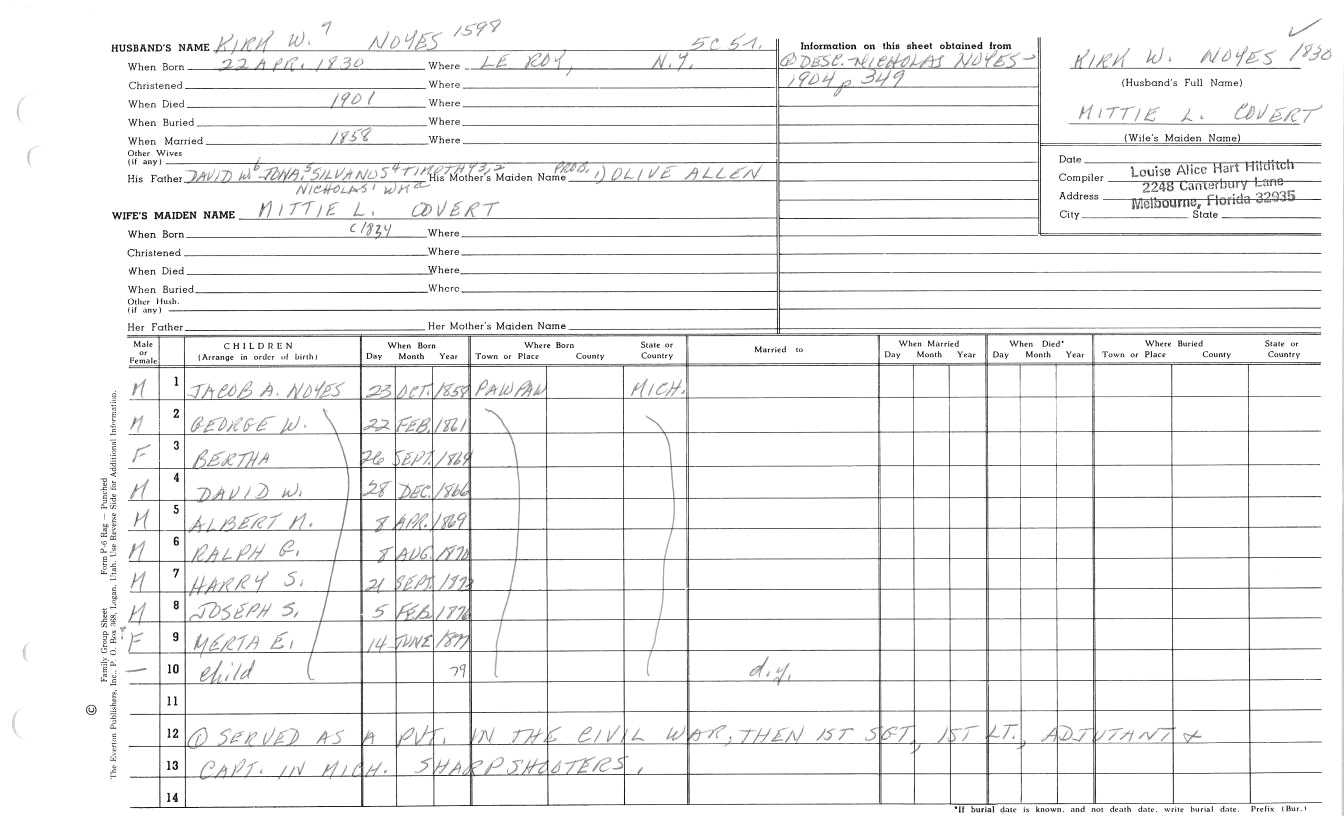 HUSBAND'S NAME KIRK W.7 NOYES 1598 5C 57.
When Born 22 APR. 1830 Where LE ROY, N.Y.
Christened Where
When Died 1901 Where
When Buried Where
When Married 1858 Where
Other Wives
(if any)
His Father DAVID W6 JONA.5 SILVANUS4 TIMOTHY3,2 His Mother's Maiden Name PROB. 1) OLIVE ALLEN
NICHOLAS1 WMa
WIFE'S MAIDEN NAME MITTIE L. COVERT
When Born c1834 Where
Christened Where
When Died Where
When Buried Where
Other Husb.
(if any)
Her Father Her Mother's Maiden Name
Information on this sheet obtained from
① DESC. NICHOLAS NOYES -
1904 p 349
✓
KIRK W. NOYES 1830
(Husband's Full Name)
MITTIE L. COVERT
(Wife's Maiden Name)
Date
Compiler Louise Alice Hart Hilditch
Address 2248 Canterbury Lane
Melbourne, Florida 32935
City State
Male or Female CHILDREN (Arrange in order of birth) When Born Day Month Year Where Born Town or Place County State or Country Married to When Married Day Month Year When Died* Day Month Year Where Buried Town or Place County State or Country
M 1 JACOB A. NOYES 23 OCT. 1859 PAWPAW MICH.
M 2 GEORGE W. 22 FEB. 1861
F 3 BERTHA 26 SEPT. 1864
M 4 DAVID W. 28 DEC. 1866
M 5 ALBERT M. 8 APR. 1869
M 6 RALPH G. 8 AUG. 1870
M 7 HARRY S. 21 SEPT. 1872
M 8 JOSEPH S. 5 FEB. 1876
F 9 MERTA E. 14 JUNE 1877
— 10 child 79 d.y.
11
12 ① SERVED AS A PVT. IN THE CIVIL WAR; THEN 1ST SGT., 1ST LT., ADJUTANT &
13 CAPT. IN MICH. SHARPSHOOTERS.
14
*If burial date is known, and not death date, write burial date. Prefix (Bur.)
Family Group Sheet Form P-6 Rag — Punched
© The Everton Publishers, Inc., P. O. Box 368, Logan, Utah. Use Reverse Side for Additional Information.